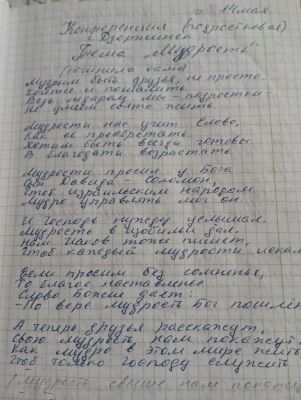 14 мая.
Конференция (подростковая)
г. Дзержинск
Тема „Мудрость"
(сочинила сама)
Мудрым быть, друзья, не просто
Хотим и пошалить
Ведь мы - подростки
Не умеем свято жить.
Мудрости нас учит Слово,
Как её приобретать.
Хотим быть всегда готовы
В благодати возрастать.
Мудрости просил у Бога
Давида - Соломон,
Чтоб израильским народом
Мудро управлять мог он.
И Господь нужду услышал.
Мудрость в изобилии дал.
Нам Иаков тоже пишет,
Чтоб каждый мудрости искал
Если просим без сомненья,
То благое наставленье
Слово Божие даёт:
- По вере мудрость Бог пошлёт
А теперь друзья расскажут,
Свою мудрость нам покажут
Как мудро в этом мире жить
Чтоб только Господу служить
Мудрость свыше нам